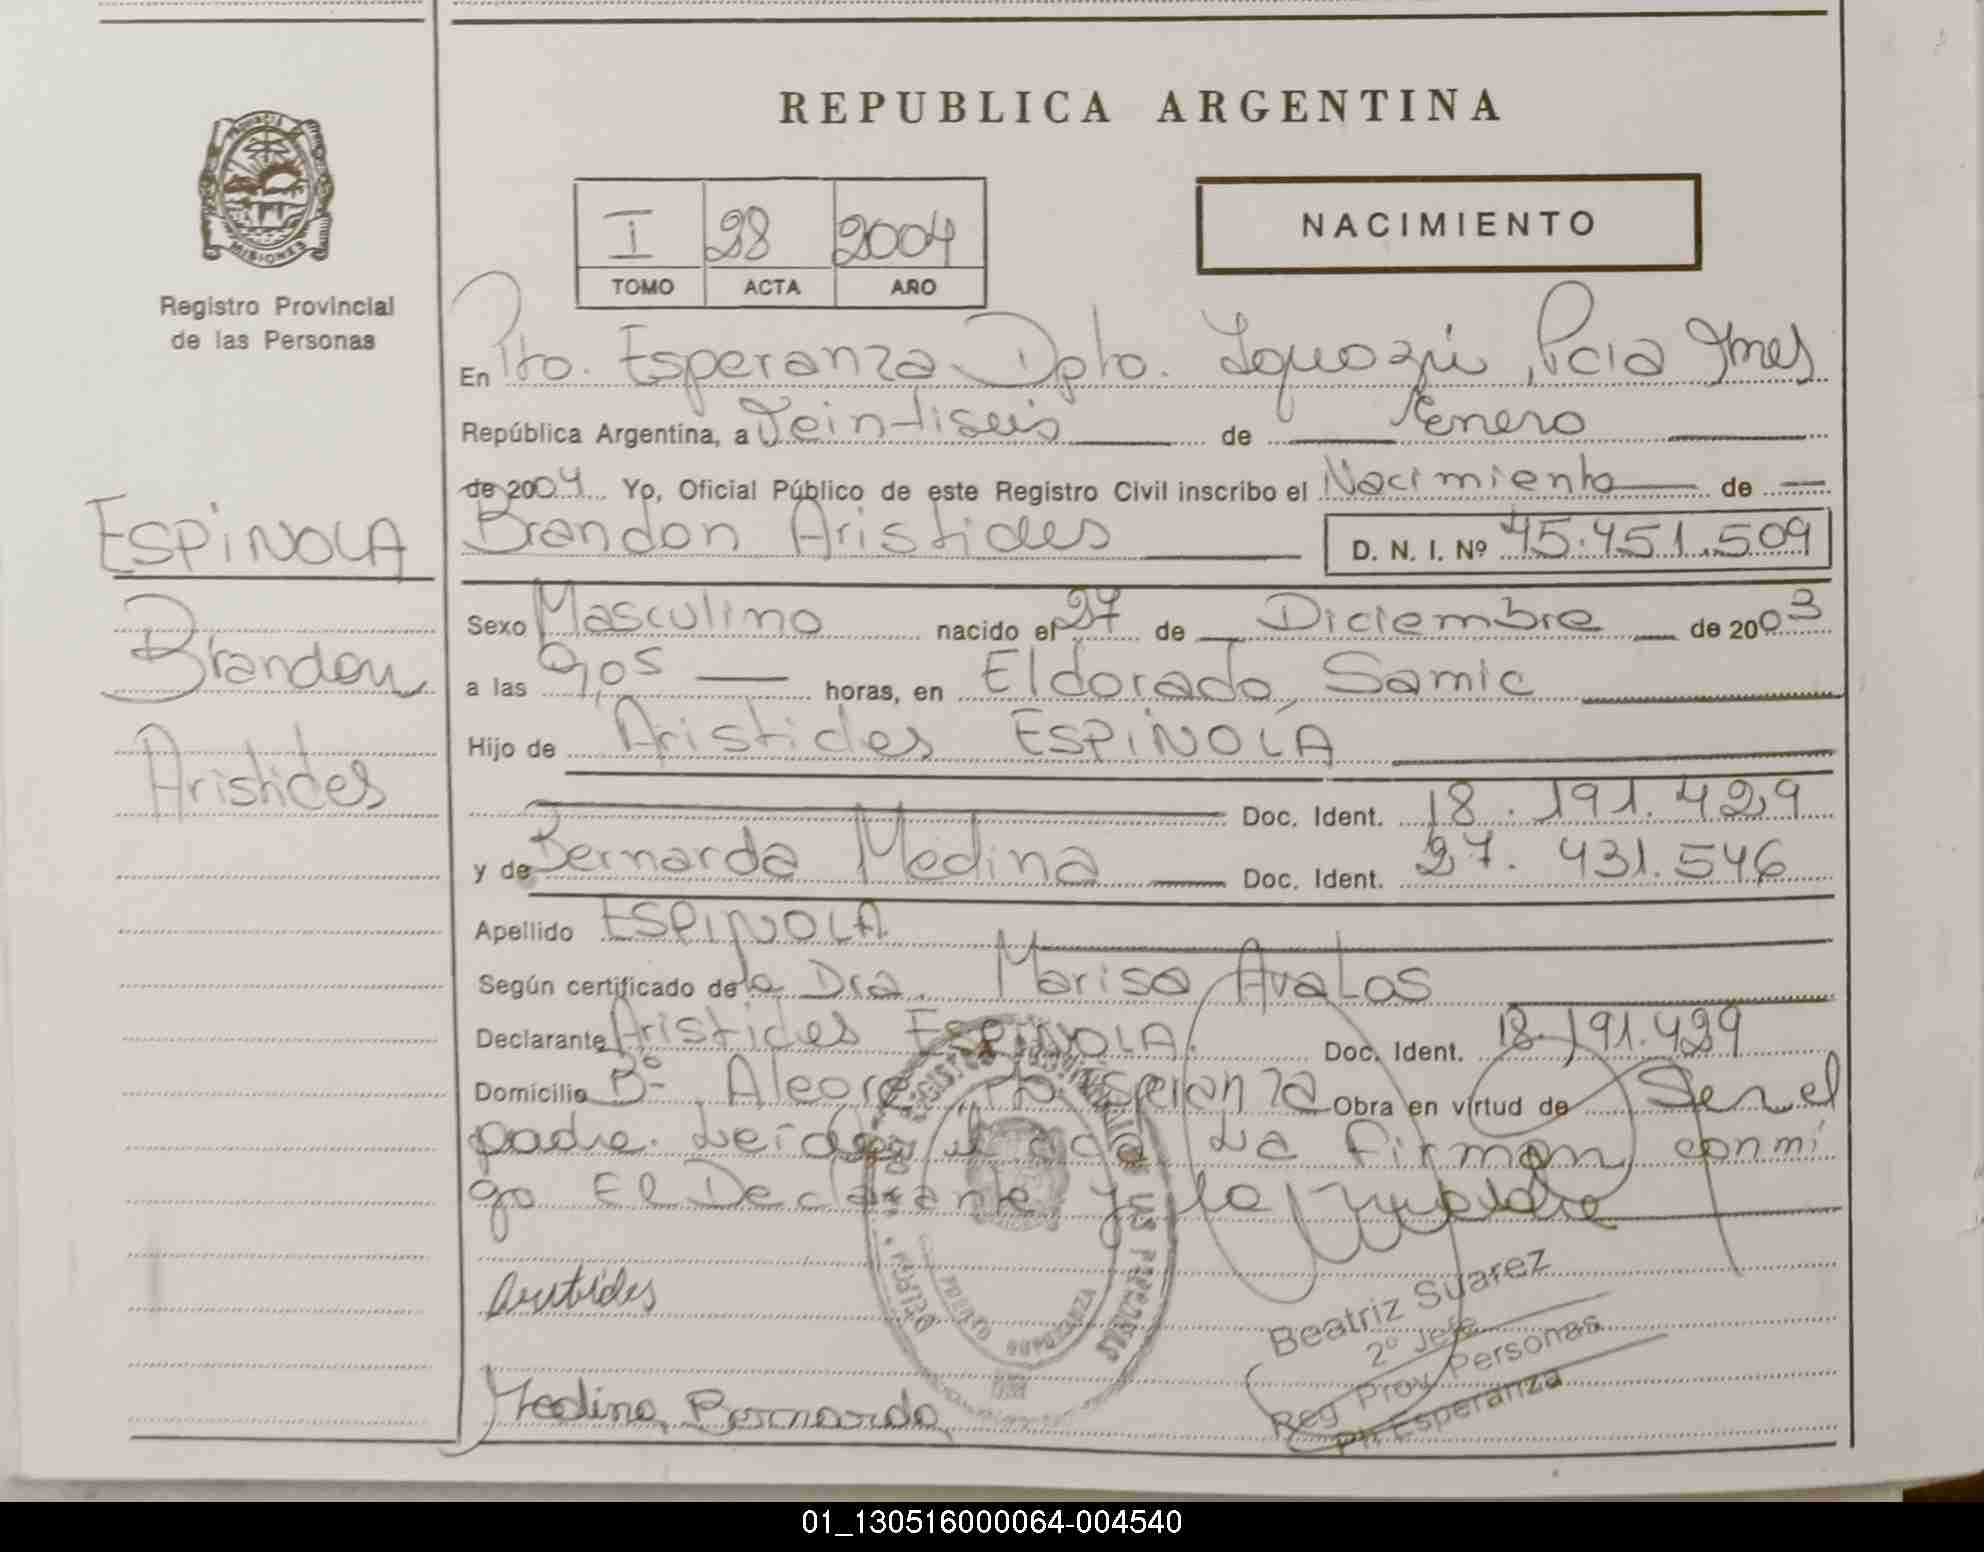 REPUBLICA ARGENTINA
PROVINCIA DE
MISIONES
Registro Provincial
de las Personas
I 28 2004
TOMO ACTA AÑO
NACIMIENTO
En Pto. Esperanza Dpto. Iguazú, Pcia Mnes
República Argentina, a Veintiseis de Enero
de 2004 Yo, Oficial Público de este Registro Civil inscribo el Nacimiento de
Brandon Aristides D. N. I. Nº 45.451.509
ESPINOLA
Brandon
Aristides
Sexo Masculino nacido el 27 de Diciembre de 2003
a las 9,05 horas, en Eldorado Samic
Hijo de Aristides ESPINOLA
Doc. Ident. 18.191.429
y de Bernarda Medina Doc. Ident. 27.431.546
Apellido ESPINOLA
Según certificado de la Dra. Marisa Avalos
Declarante Aristides ESPINOLA. Doc. Ident. 18.191.429
Domicilio Bº Alegre Pto Esperanza Obra en virtud de Ser el
padre. Leida el acta La firman conmi
go El Declarante y la Madre
Aristides
Medina Bernarda
PUERTO ESPERANZA
Beatriz Suarez
2º Jefe
Reg Prov Personas
Pto Esperanza
01_130516000064-004540